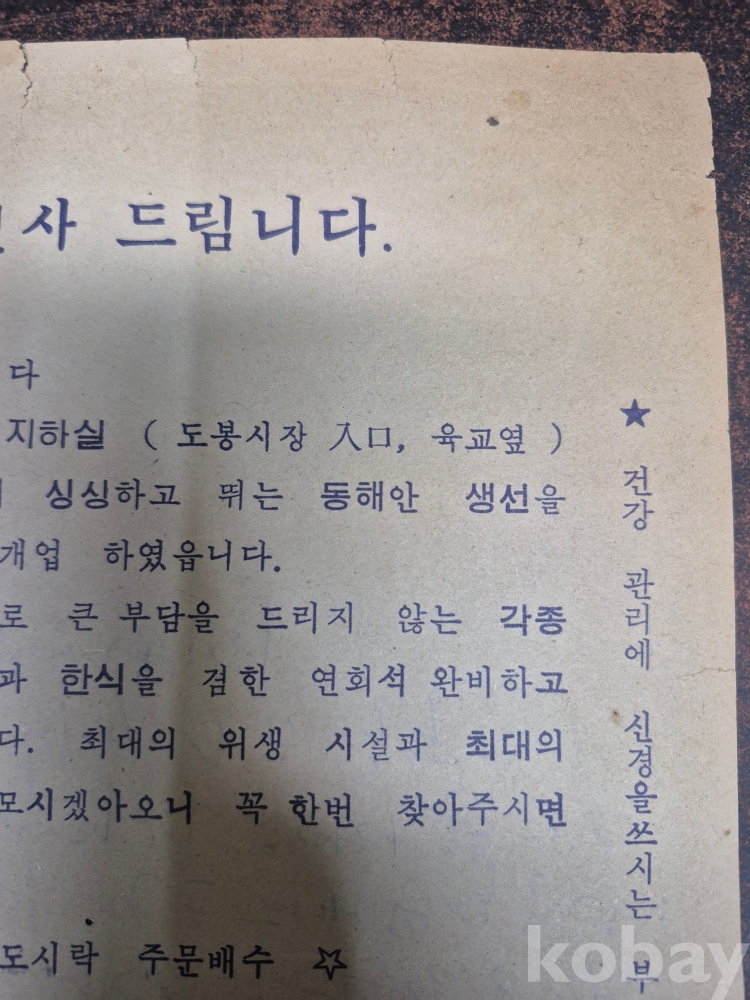 인사 드립니다.
다
지하실 ( 도봉시장 入口, 육교옆 )
싱싱하고 뛰는 동해안 생선을
개업 하였읍니다.
로 큰 부담을 드리지 않는 각종
과 한식을 겸한 연회석 완비하고
다. 최대의 위생 시설과 최대의
모시겠아오니 꼭 한번 찾아주시면
도시락 주문배수 ☆
★ 건강 관리에 신경을쓰시는 부
kobay